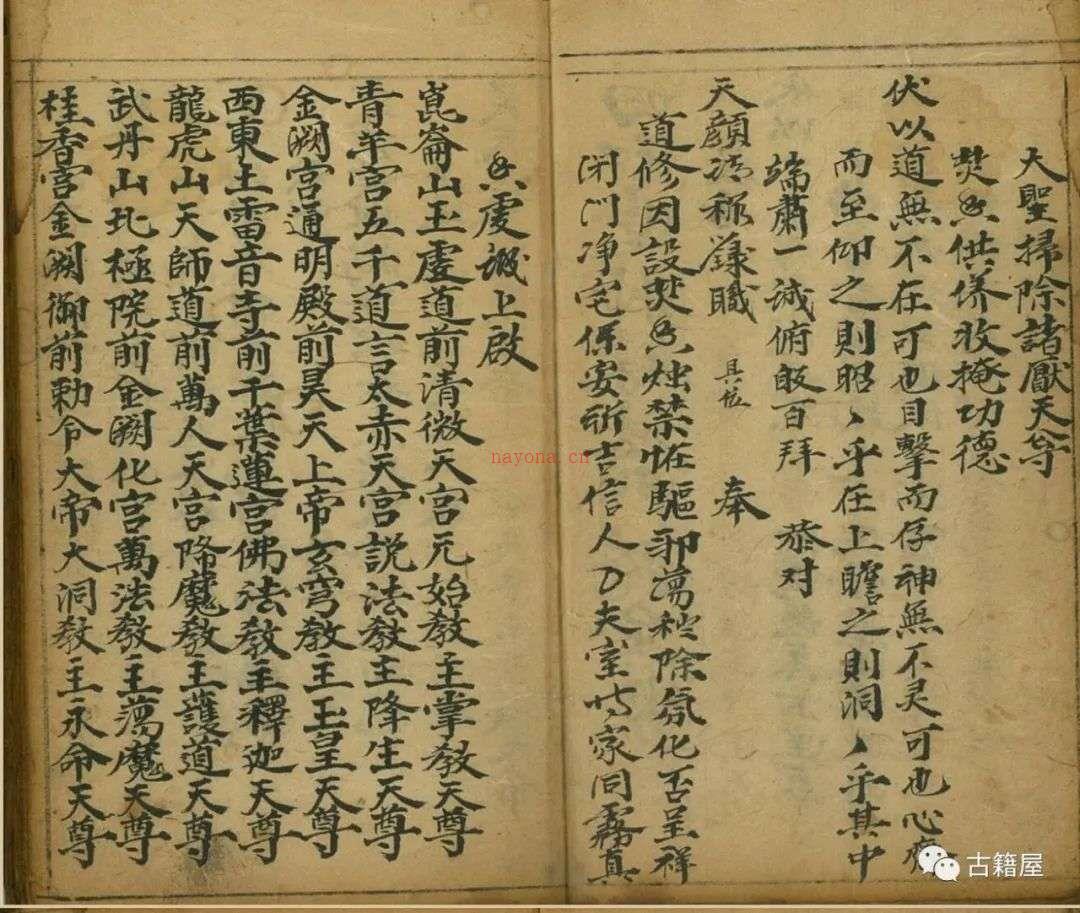 大聖掃除諸厭天尊
焚香供养收掩功德
伏以道無不在可也目擊而存神無不灵可也心齋
而至仰之則昭〻乎在上瞻之則洞〻乎其中
端肅一誠俯皈百拜 恭对
天顔清称籙職 具位 奉
道修因設焚香烛禁怪驅邪蕩秽除氛化否呈祥
闭门净宅保安祈吉信人 夫室 家同
香虔诚上啟
崑崙山玉虚道前清微天宫元始教主掌教天尊
青羊宫五千道言太赤天宫説法教主降生天尊
金阙宫通明殿前昊天上帝玄穹教主玉皇天尊
西東土雷音寺前千葉蓮宫佛法教主釋迦天尊
龍虎山天師道前萬人天宫降魔教主護道天尊
武丹山北極院前金阙化宫萬法教主蕩魔天尊
桂香宫金阙御前勅令大帝大洞教主永命天尊
nayona.cn
古籍屋